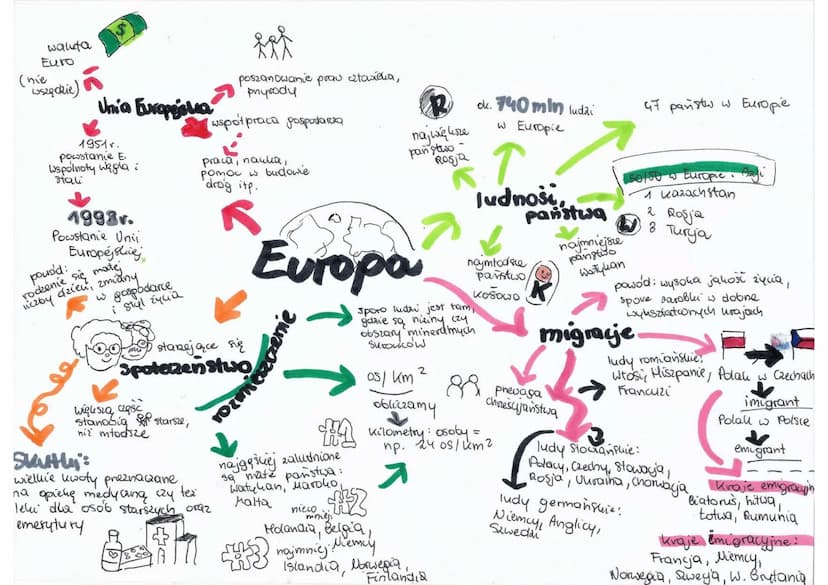 waluta
Euro
(nie
wszędzie)
$
Unia Europejska
poszanowanie praw człowieka,
przyrody
współpraca gospodarcza
praca, nauka,
pomoc w budowie
dróg itp.
1951r.
powstanie E.
wspólnoty węgla i
stali
1993r.
Powstanie Unii
Europejskiej
Europa
R
największe
państwo -
Rosja
ok. 740 mln ludzi
w Europie
47 państw w Europie
ludność,
państwa
50/50 w Europie i Azji
1 Kazachstan
2 Rosja
3 Turcja
najmłodsze
państwo
Kosowo
K
W
najmniejsze
państwo
Watykan
powód:
rodzenie się małej
liczby dzieci, zmiany
w gospodarce
i styl życia
starzejące się
społeczeństwo
większą część
stanowią starsze,
niż młodsze
Skutki:
wielkie kwoty przeznawane
na opiekę medyczną czy też
leki dla osób starszych oraz
emerytury
rozmieszczenie
sporo ludzi jest tam,
gdzie są niziny czy
obszary mineralnych
surowców
os/km²
obliczamy
kilometry: osoby =
np. 24 os/km²
najgęściej zaludnione
są małe państwa:
Watykan, Maroko,
Malta
#1
nieco
mniej:
#2
Holandia, Belgia,
Niemcy
#3
najmniej:
Islandia, Norwegia,
Finlandia
migracje
powód: wysoka jakość życia,
spore zarobki w dobrze
wykształconych krajach
przewaga
chrześcijaństwa
ludy romańskie:
Włosi, Hiszpanie,
Francuzi
ludy słowiańskie:
Polacy, Czechy, Słowacja,
Rosja, Ukraina, Chorwacja
ludy germańskie:
Niemcy, Anglicy,
Szwedki
Polak w Czechach
imigrant
Polak w Polsce
emigrant
Kraje emigracyjne
Białoruś, Litwa,
Łotwa, Rumunia
Kraje imigracyjne:
Francja, Niemcy,
Norwegia, Szwecja, W. Brytania